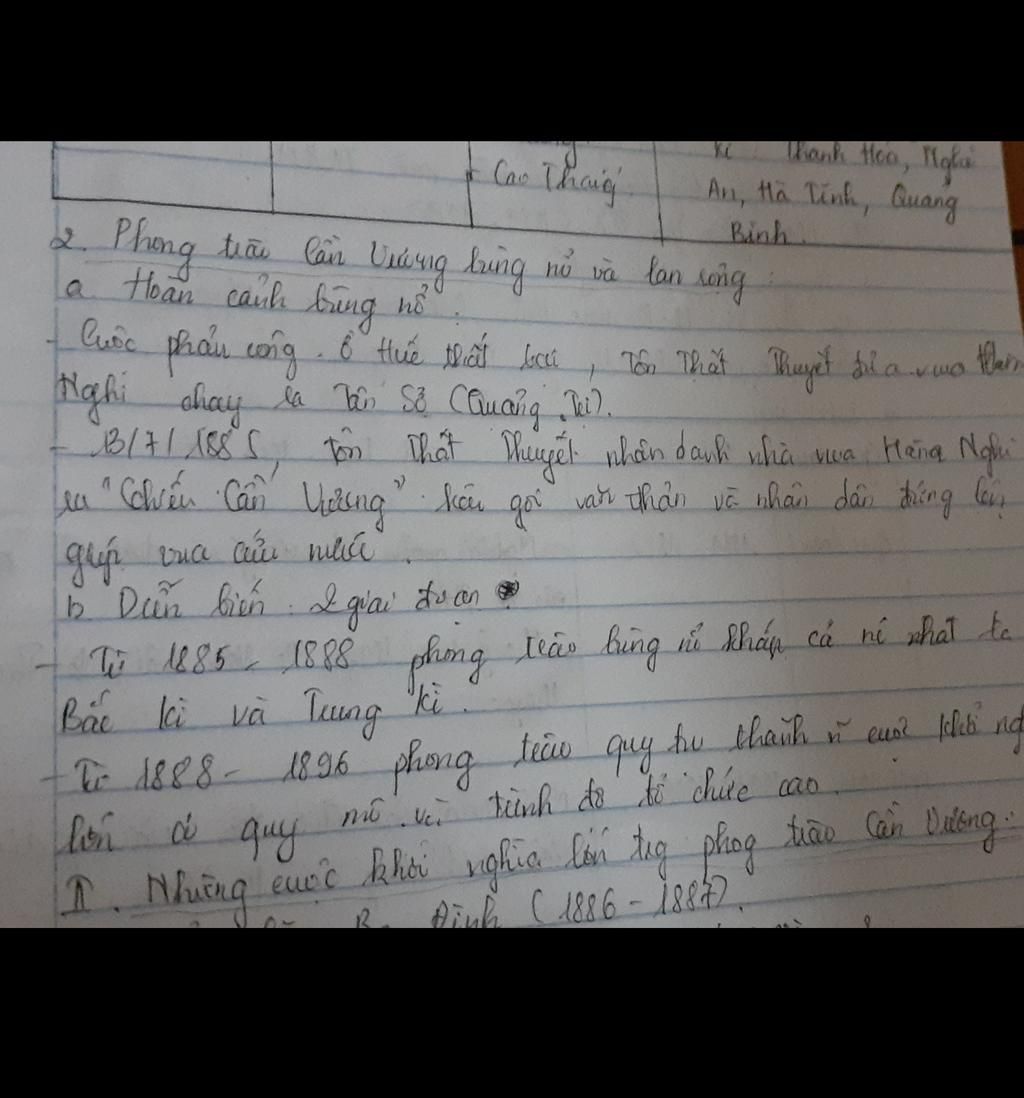 Kì : Thanh Hóa, Nghệ
+ Cao Thắng.
An, Hà Tĩnh, Quảng
Bình.
2. Phong trào Cần Vương bùng nổ và lan rộng :
a. Hoàn cảnh bùng nổ.
- Cuộc phản công ở Huế thất bại, Tôn Thất Thuyết đưa vua Hàm
Nghi chạy ra Tân Sở (Quảng Trị).
- 13/7/1885, Tôn Thất Thuyết nhân danh nhà vua Hàm Nghi
ra "Chiếu Cần Vương" kêu gọi văn thân và nhân dân đứng lên
giúp vua cứu nước.
b Diễn biến : 2 giai đoạn
- Từ 1885 - 1888 phong trào bùng nổ khắp cả nc nhất
Bắc kì và Trung kì.
- Từ 1888 - 1896 phong trào quy tụ thành ~ cuộc khởi ng
lớn có quy mô và trình độ tổ chức cao.
II. Những cuộc khởi nghĩa lớn trg phog trào Cần Vương.
Đình (1886 - 1887).